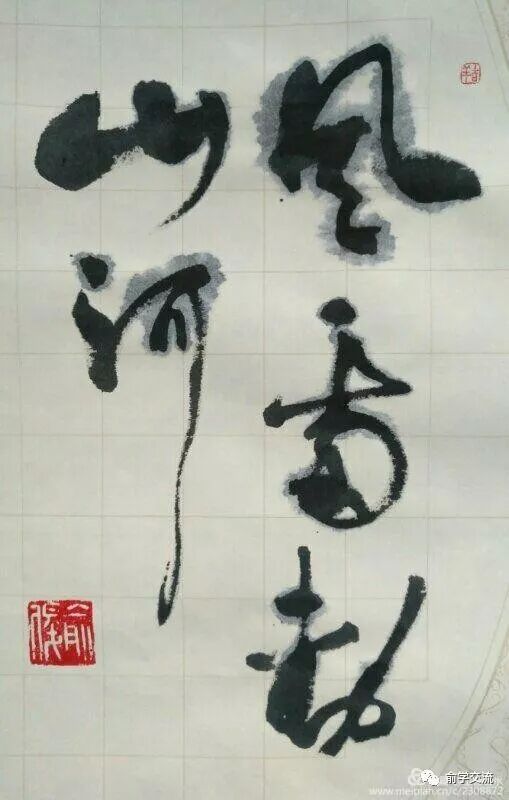 風雷動
山河
俞学交流
www.meipian.cn/c/2308872